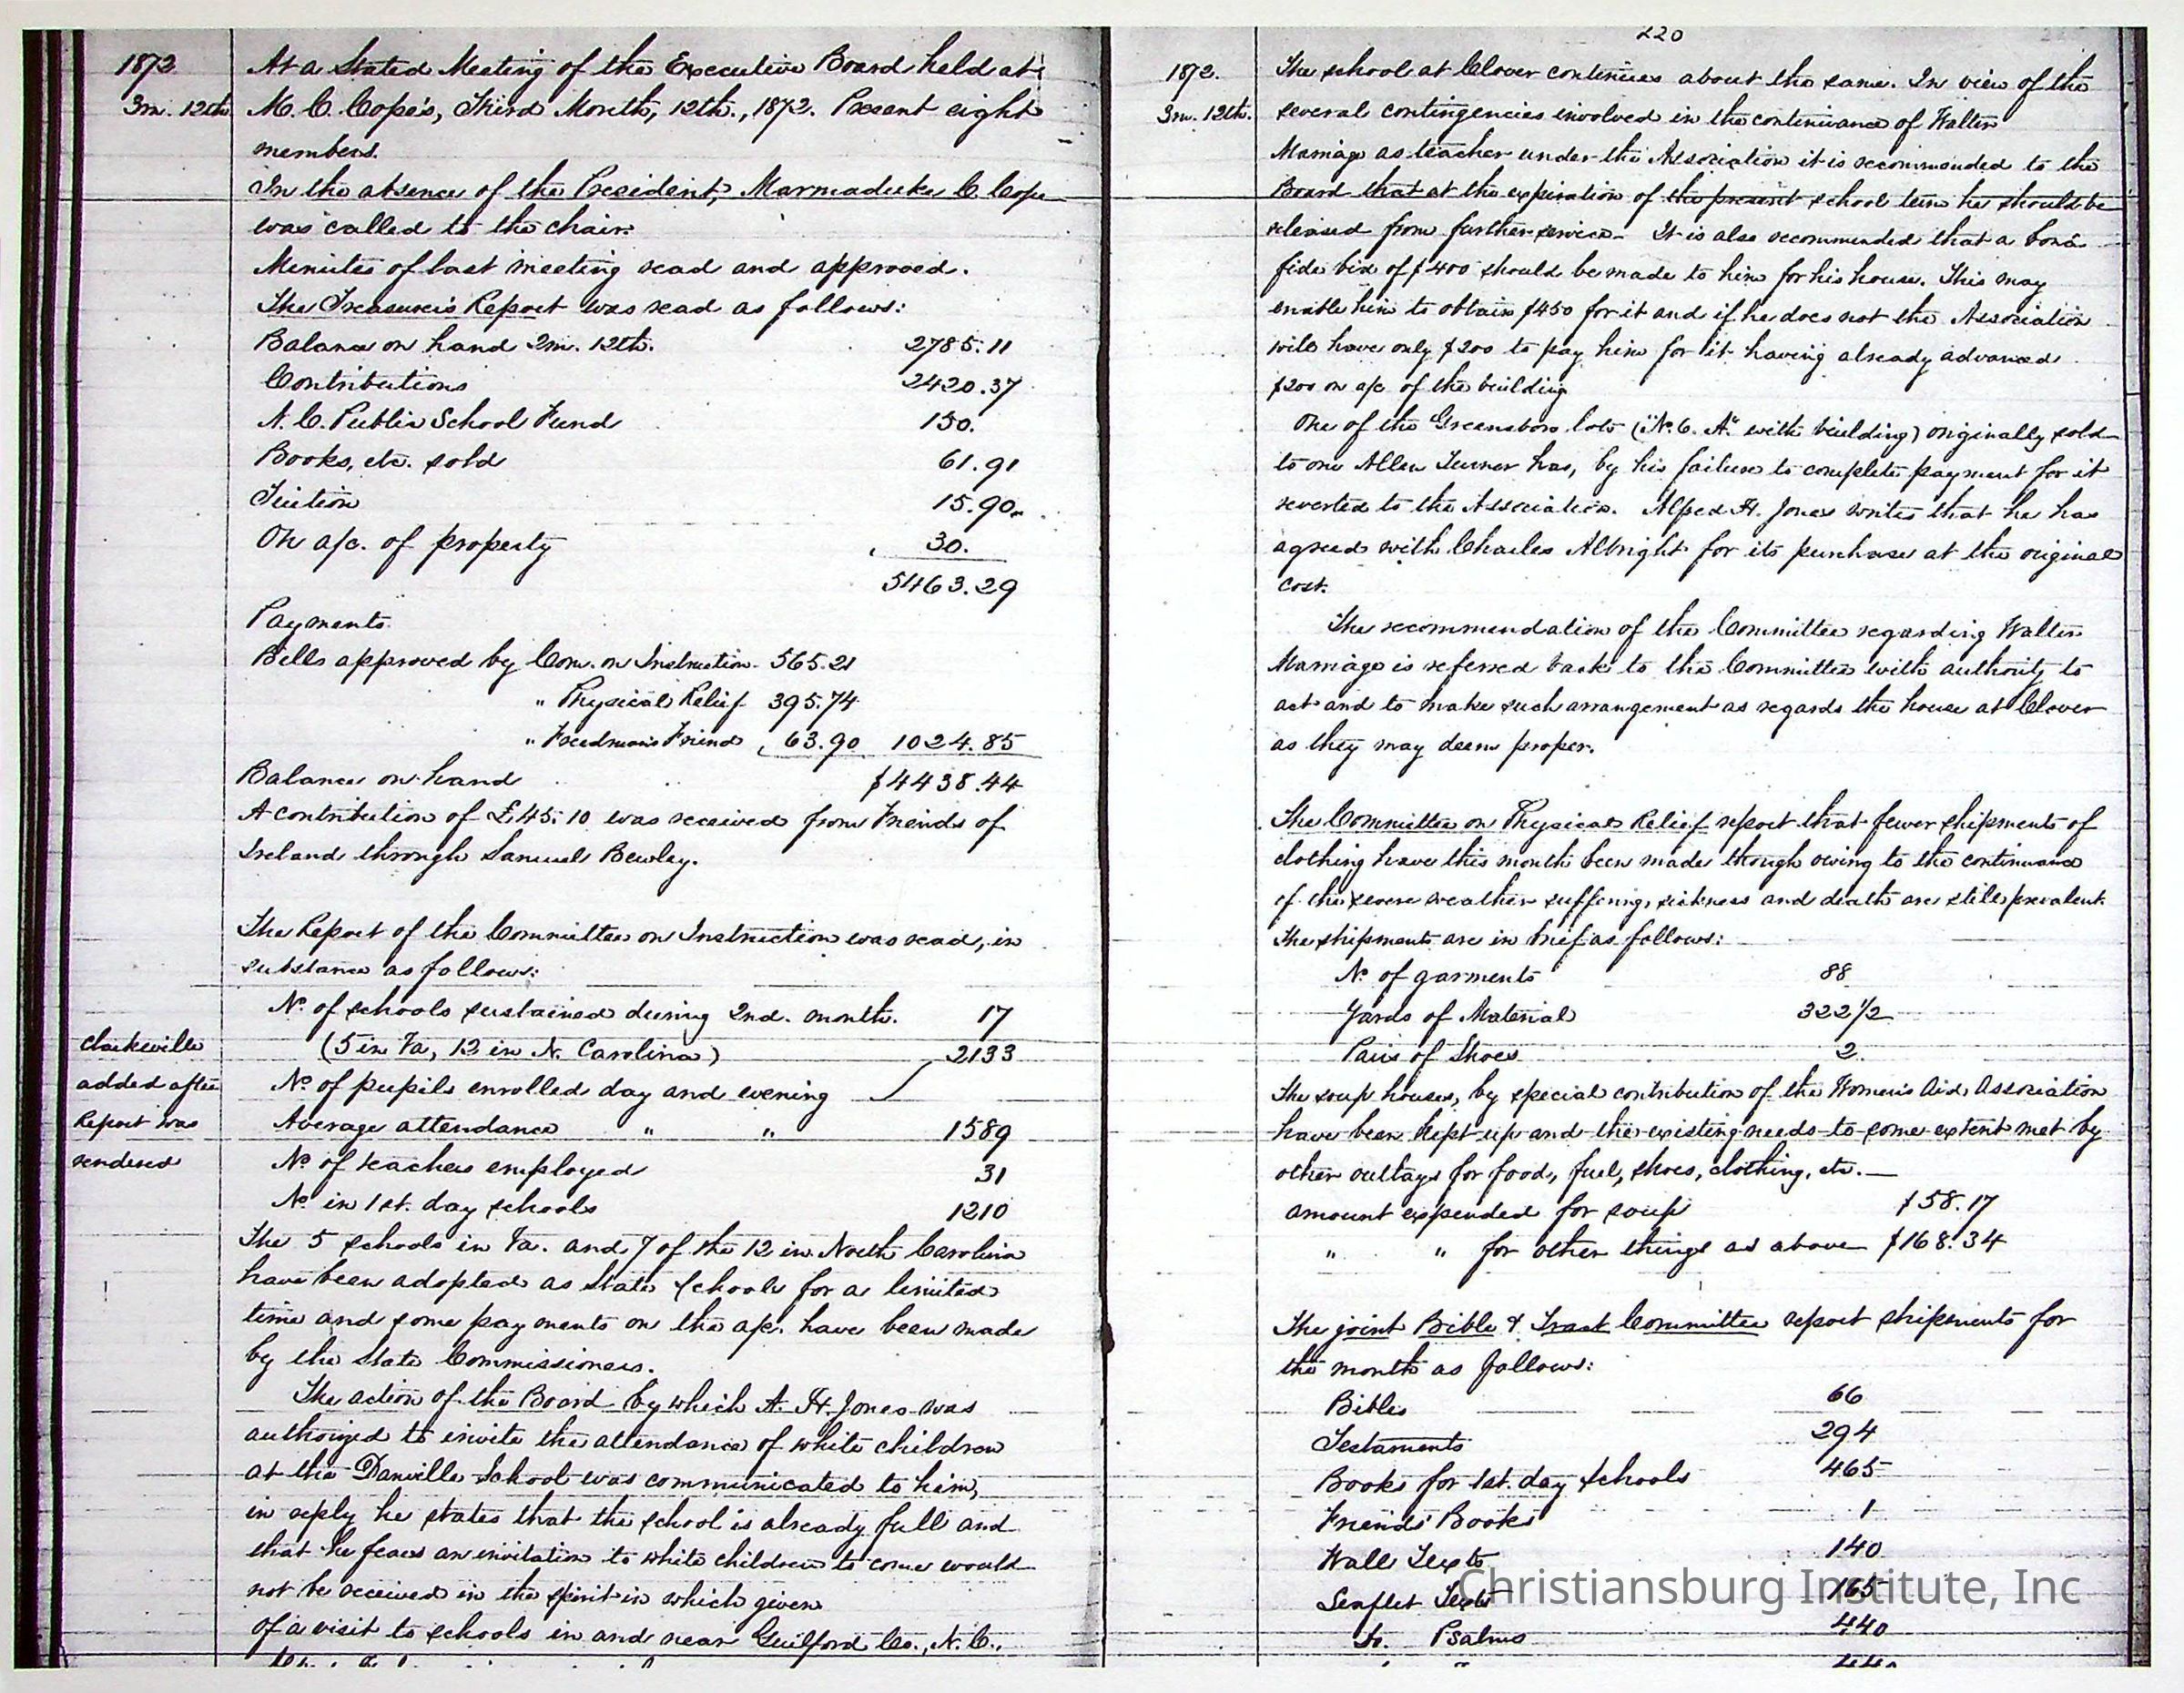 1872
3m. 12th.
At a Stated Meeting of the Executive Board held at
M. C. Cope's, Third Month, 12th., 1872. Present eight
members.
In the absence of the President, Marmaduke C. Cope
was called to the chair.
Minutes of last meeting read and approved.
The Treasurer's Report was read as follows:
Balance on hand 2m. 12th. 2785.11
Contributions 2420.37
N. C. Public School Fund 150.
Books, etc. sold 61.91
Tuition 15.90
On a/c. of property 30.
5463.29
Payments.
Bills approved by Com. on Instruction 565.21
" Physical Relief 395.74
" Freedman's Friend 63.90 1024.85
Balance on hand $4438.44
A contribution of £45.10 was received from Friends of
Ireland through Samuel Bewley.
The Report of the Committee on Instruction was read, in
substance as follows:
No. of schools sustained during 2nd. month. 17
(5 in Va, 12 in N. Carolina) 2133
No. of pupils enrolled day and evening
Average attendance " " 1589
No. of teachers employed 31
No. in 1st. day schools 1210
Clarkeville
added after
Report was
rendered
The 5 schools in Va. and 7 of the 12 in North Carolina
have been adopted as State Schools for a limited
time and some payments on the a/c. have been made
by the State Commissioners.
The action of the Board by which A. H. Jones was
authorized to invite the attendance of white children
at the Danville School was communicated to him,
in reply he states that the school is already full and
that he fears an invitation to white children to come would
not be received in the spirit in which given
Of a visit to schools in and near Guilford Co., N. C.,
220
1872.
3m. 12th.
The school at Clover continues about the same. In view of the
several contingencies involved in the continuance of Walter
Marriage as teacher under the Association it is recommended to the
Board that at the expiration of the present school term he should be
released from further service. It is also recommended that a bona
fide bid of $400 should be made to him for his house. This may
enable him to obtain $450 for it and if he does not the Association
will have only $200 to pay him for it having already advanced
$200 on a/c. of the building
One of the Greensboro lots ("N. C. A." with building) originally sold
to one Allen Turner has, by his failure to complete payment for it
reverted to the Association. Alfred H. Jones writes that he has
agreed with Charles Albright for its purchase at the original
cost.
The recommendation of the Committee regarding Walter
Marriage is referred back to the Committee with authority to
act and to make such arrangement as regards the house at Clover
as they may deem proper.
The Committee on Physical Relief report that fewer shipments of
clothing have this month been made though owing to the continuance
of the severe weather suffering, sickness and death are still prevalent.
The shipments are in brief as follows:
No. of garments 88
Yards of Material 322 1/2
Pairs of Shoes 2
The soup houses, by special contribution of the Women's Aid Association
have been kept up and the existing needs to some extent met by
other outlays for food, fuel, shoes, clothing, etc.—
amount expended for soup $58.17
" " for other things as above $168.34
The joint Bible & Tract Committee report shipments for
the month as follows:
Bibles 66
Testaments 294
Books for 1st. day schools 465
Friends' Books 1
Wall Texts 140
Leaflet Texts 165
Do. Psalms 440
Christiansburg Institute, Inc